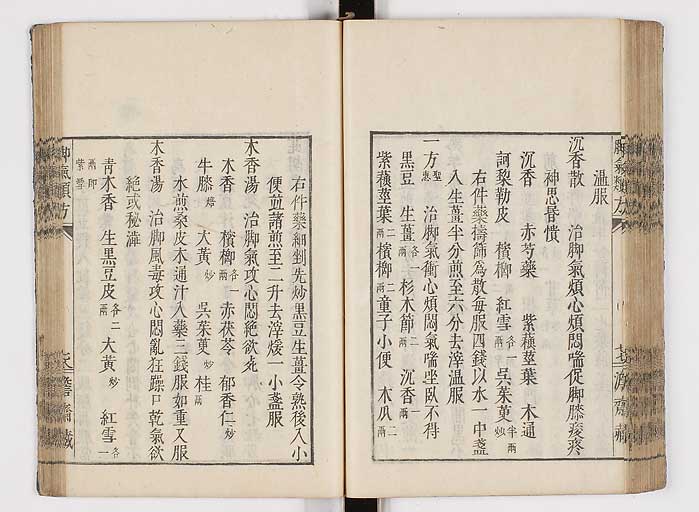 温服
沉香散 治脚氣煩心煩悶喘促脚膝痠疼
神思昏憒
沉香 赤芍藥 紫蘓莖葉 木通
訶黎勒皮 檳榔 紅雪各一兩 吳茱萸半兩
右件藥擣篩爲散每服四錢以水一中盞
入生薑半分煎至六分去滓温服
一方聖惠 治脚氣衝心煩悶氣喘坐臥不得
黑豆 生薑各一兩 杉木節二兩 沉香一兩
紫蘓莖葉二兩 檳榔二兩 童子小便 木瓜二兩
右件藥細剉先炒黑豆生薑令熟後入小
便並諸煎至二升去滓煖一小盞服
木香湯 治脚氣攻心悶絕欲死
木香 檳榔各一兩 赤茯苓 郁香仁炒
牛膝焙 大黃炒 吳茱萸炒 桂兩
水煎桑皮木通汁入藥三錢服如重又服
木香湯 治脚風毒攻心悶亂狂躁口乾氣欲
絕或秘澁
青木香 生黑豆皮各二兩 大黃炒 紅雪各一
兩即紫雪
脚氣類方
脚氣類方